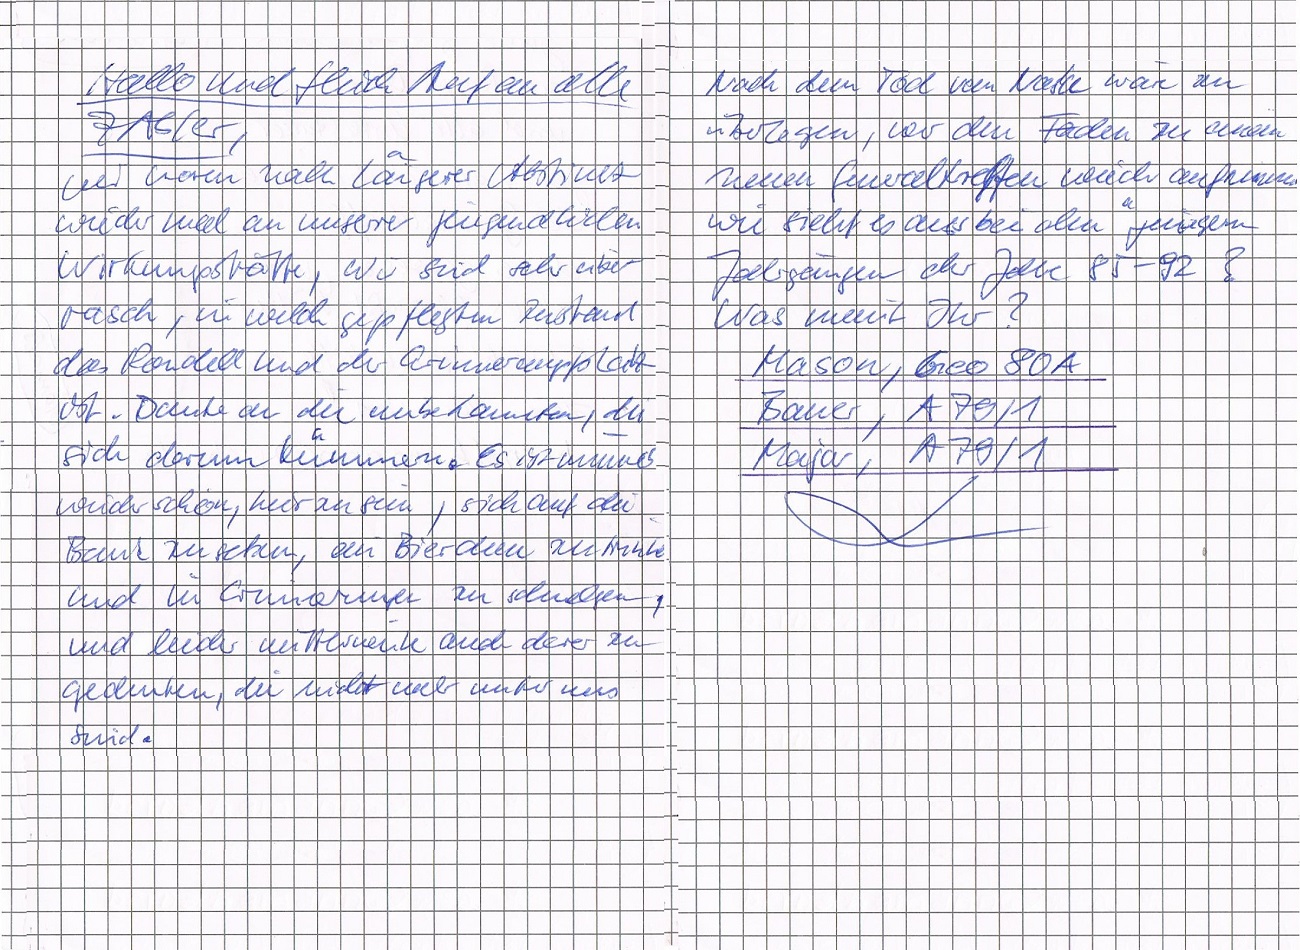 Hallo und Glück Auf an alle
ZASler,
wir waren nach längerer Abstinez
wieder mal an unserer jugendlichen
Wirkungsstätte, wir sind sehr über
rasch, in welch gepflegten Zustand
das Rondell und der Erinnerungsplatz
ist. Danke an die unbekannten, die
sich darum kümmern. Es ist immer
wieder schön, hier zu sein, sich auf die
Bank zu setzen, ein Bierchen zu trinken
und in Erinnerungen zu schwelgen,
und leider mittlerweile auch derer zu
gedenken, die nicht mehr unter uns
sind.
Nach dem Tod von wäre zu
überlegen, wer den Faden zu einem
neuen Generaltreffen wieder aufnimmt
wie sieht es aus bei den jüngern
Jahrgängen der Jahre 85-92?
Was meint Ihr?
Mason, 80A
Bauer, A79/1
Major, A79/1